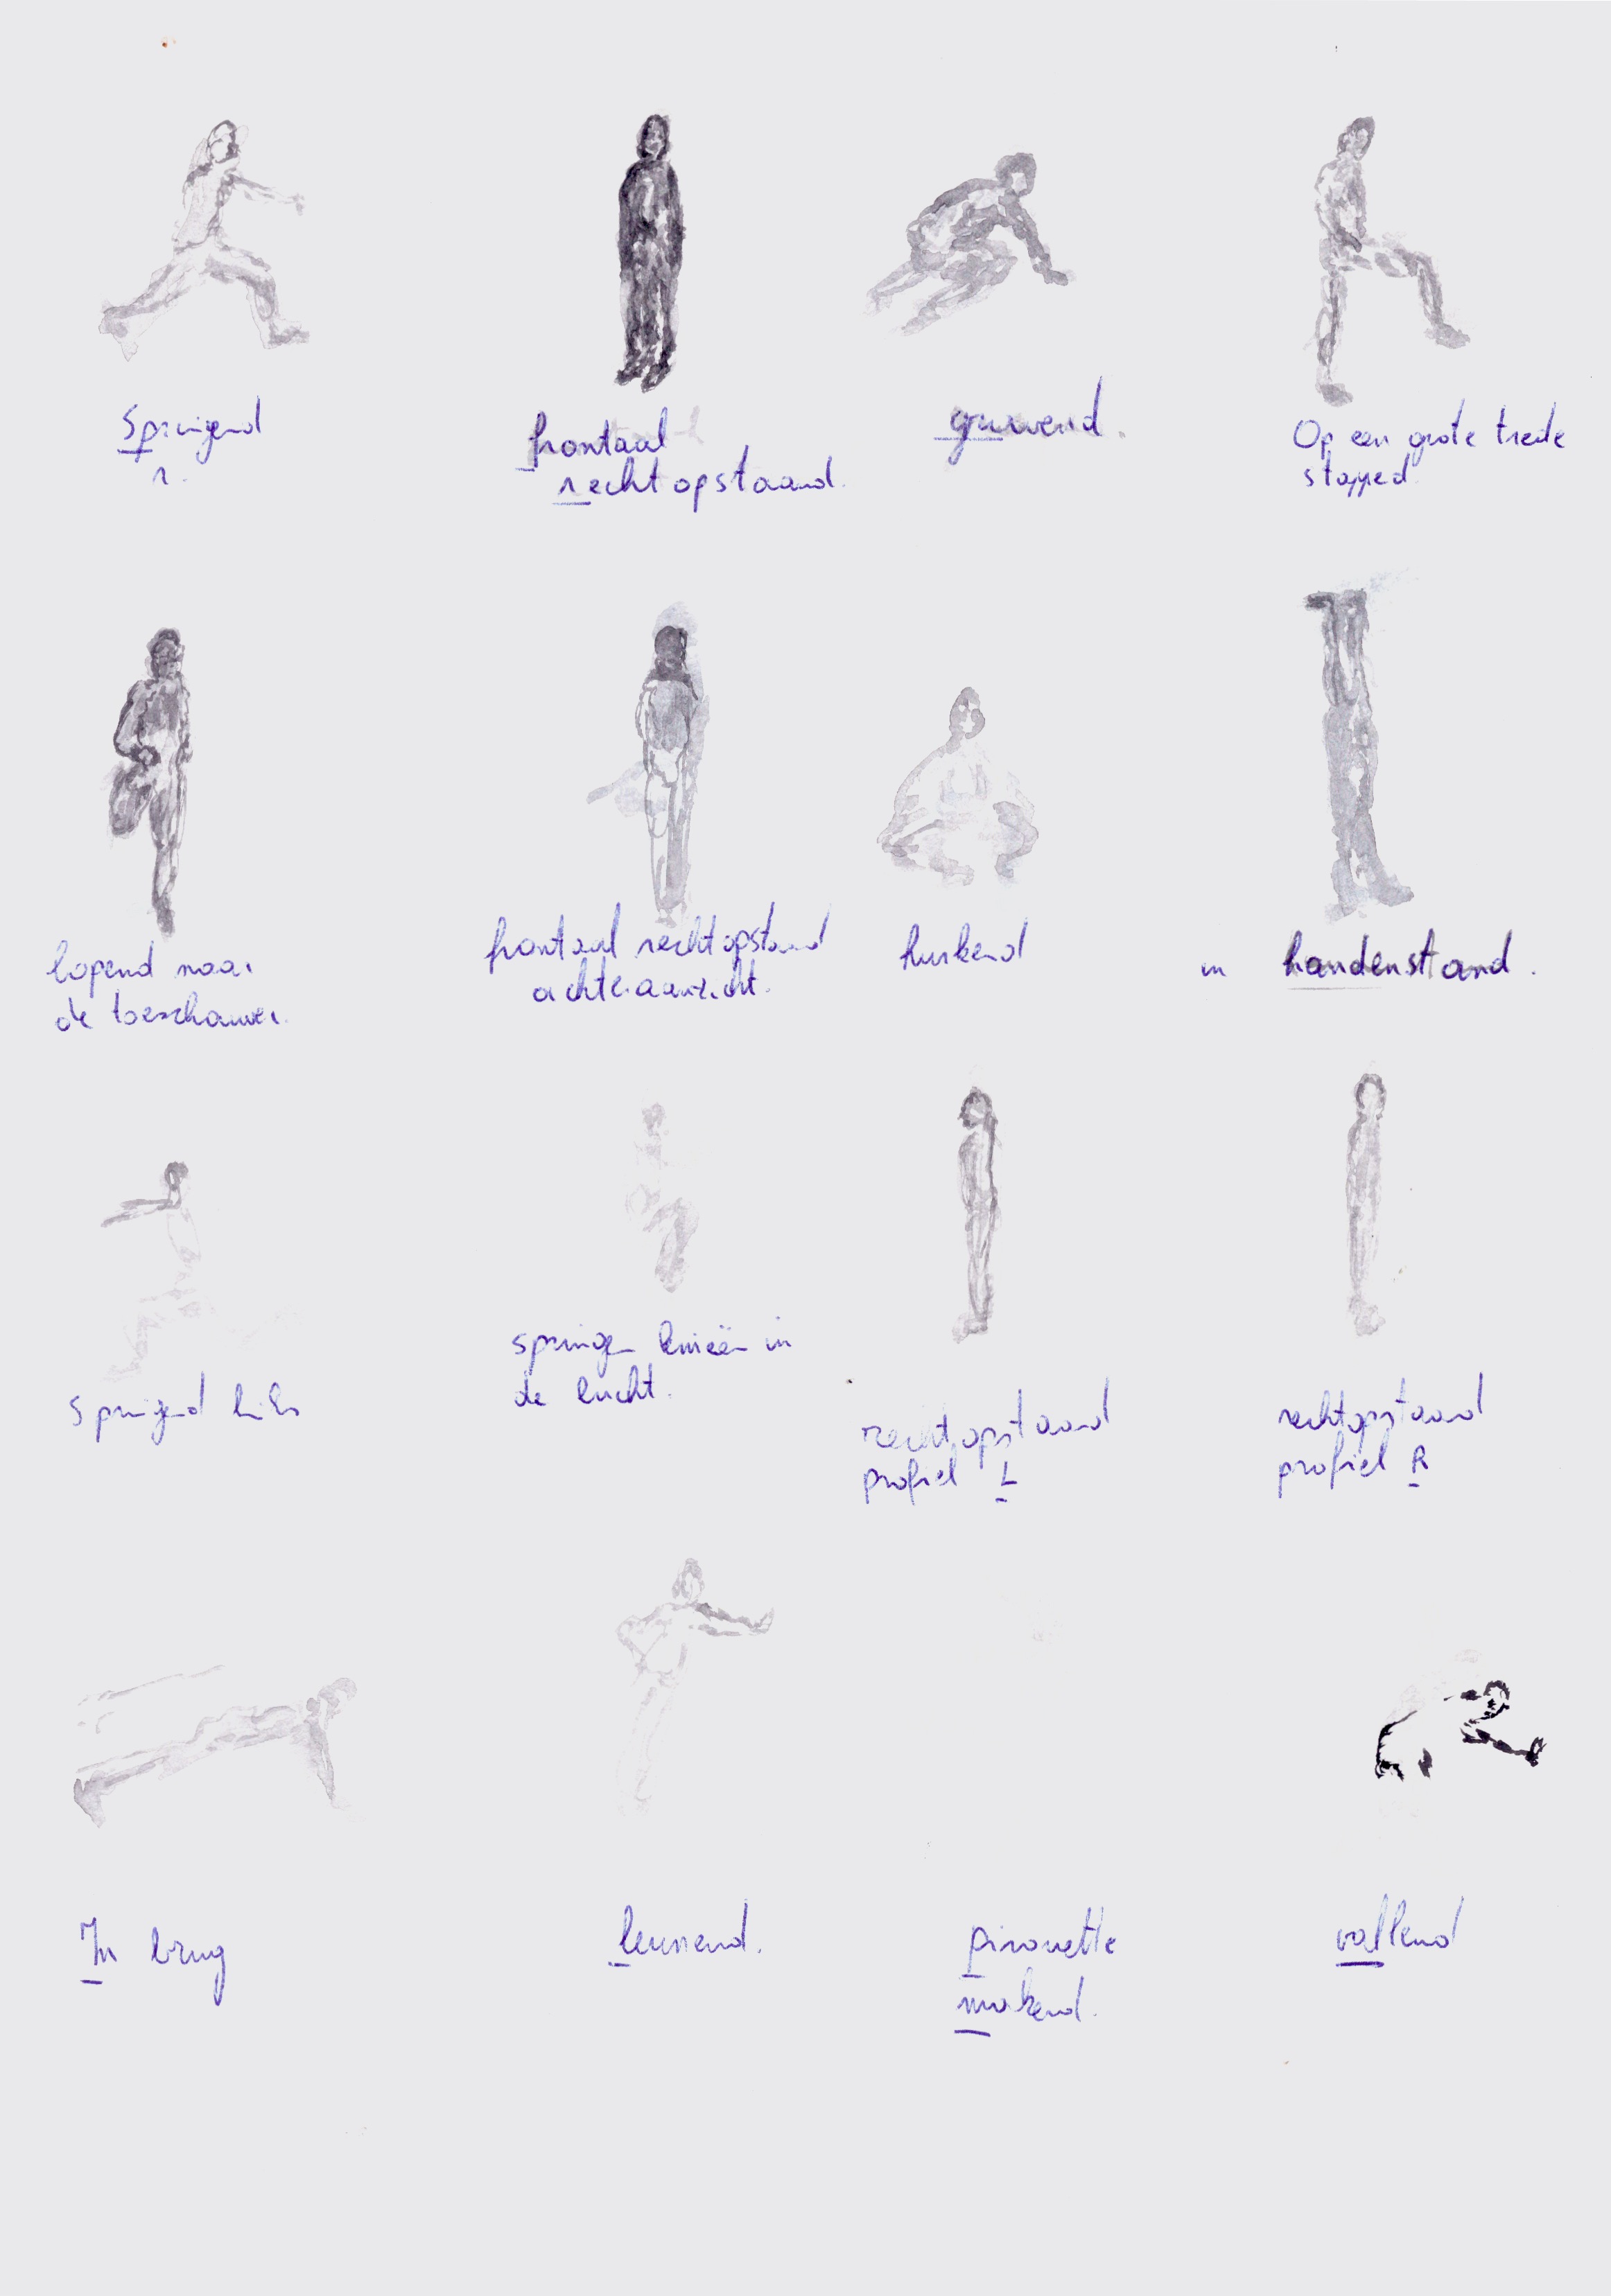 springend
r.
frontaal
rechtopstaand.
gravend.
Op een grote trede
stapped
lopend naar
de toeschouwer.
frontaal rechtopstaand
achteraanzicht.
hurkend
in handenstand.
springend links
springen knieën in
de lucht.
rechtopstaand
profiel L
rechtopstaand
profiel R
In brug
leunend.
pirouette
makend.
vallend